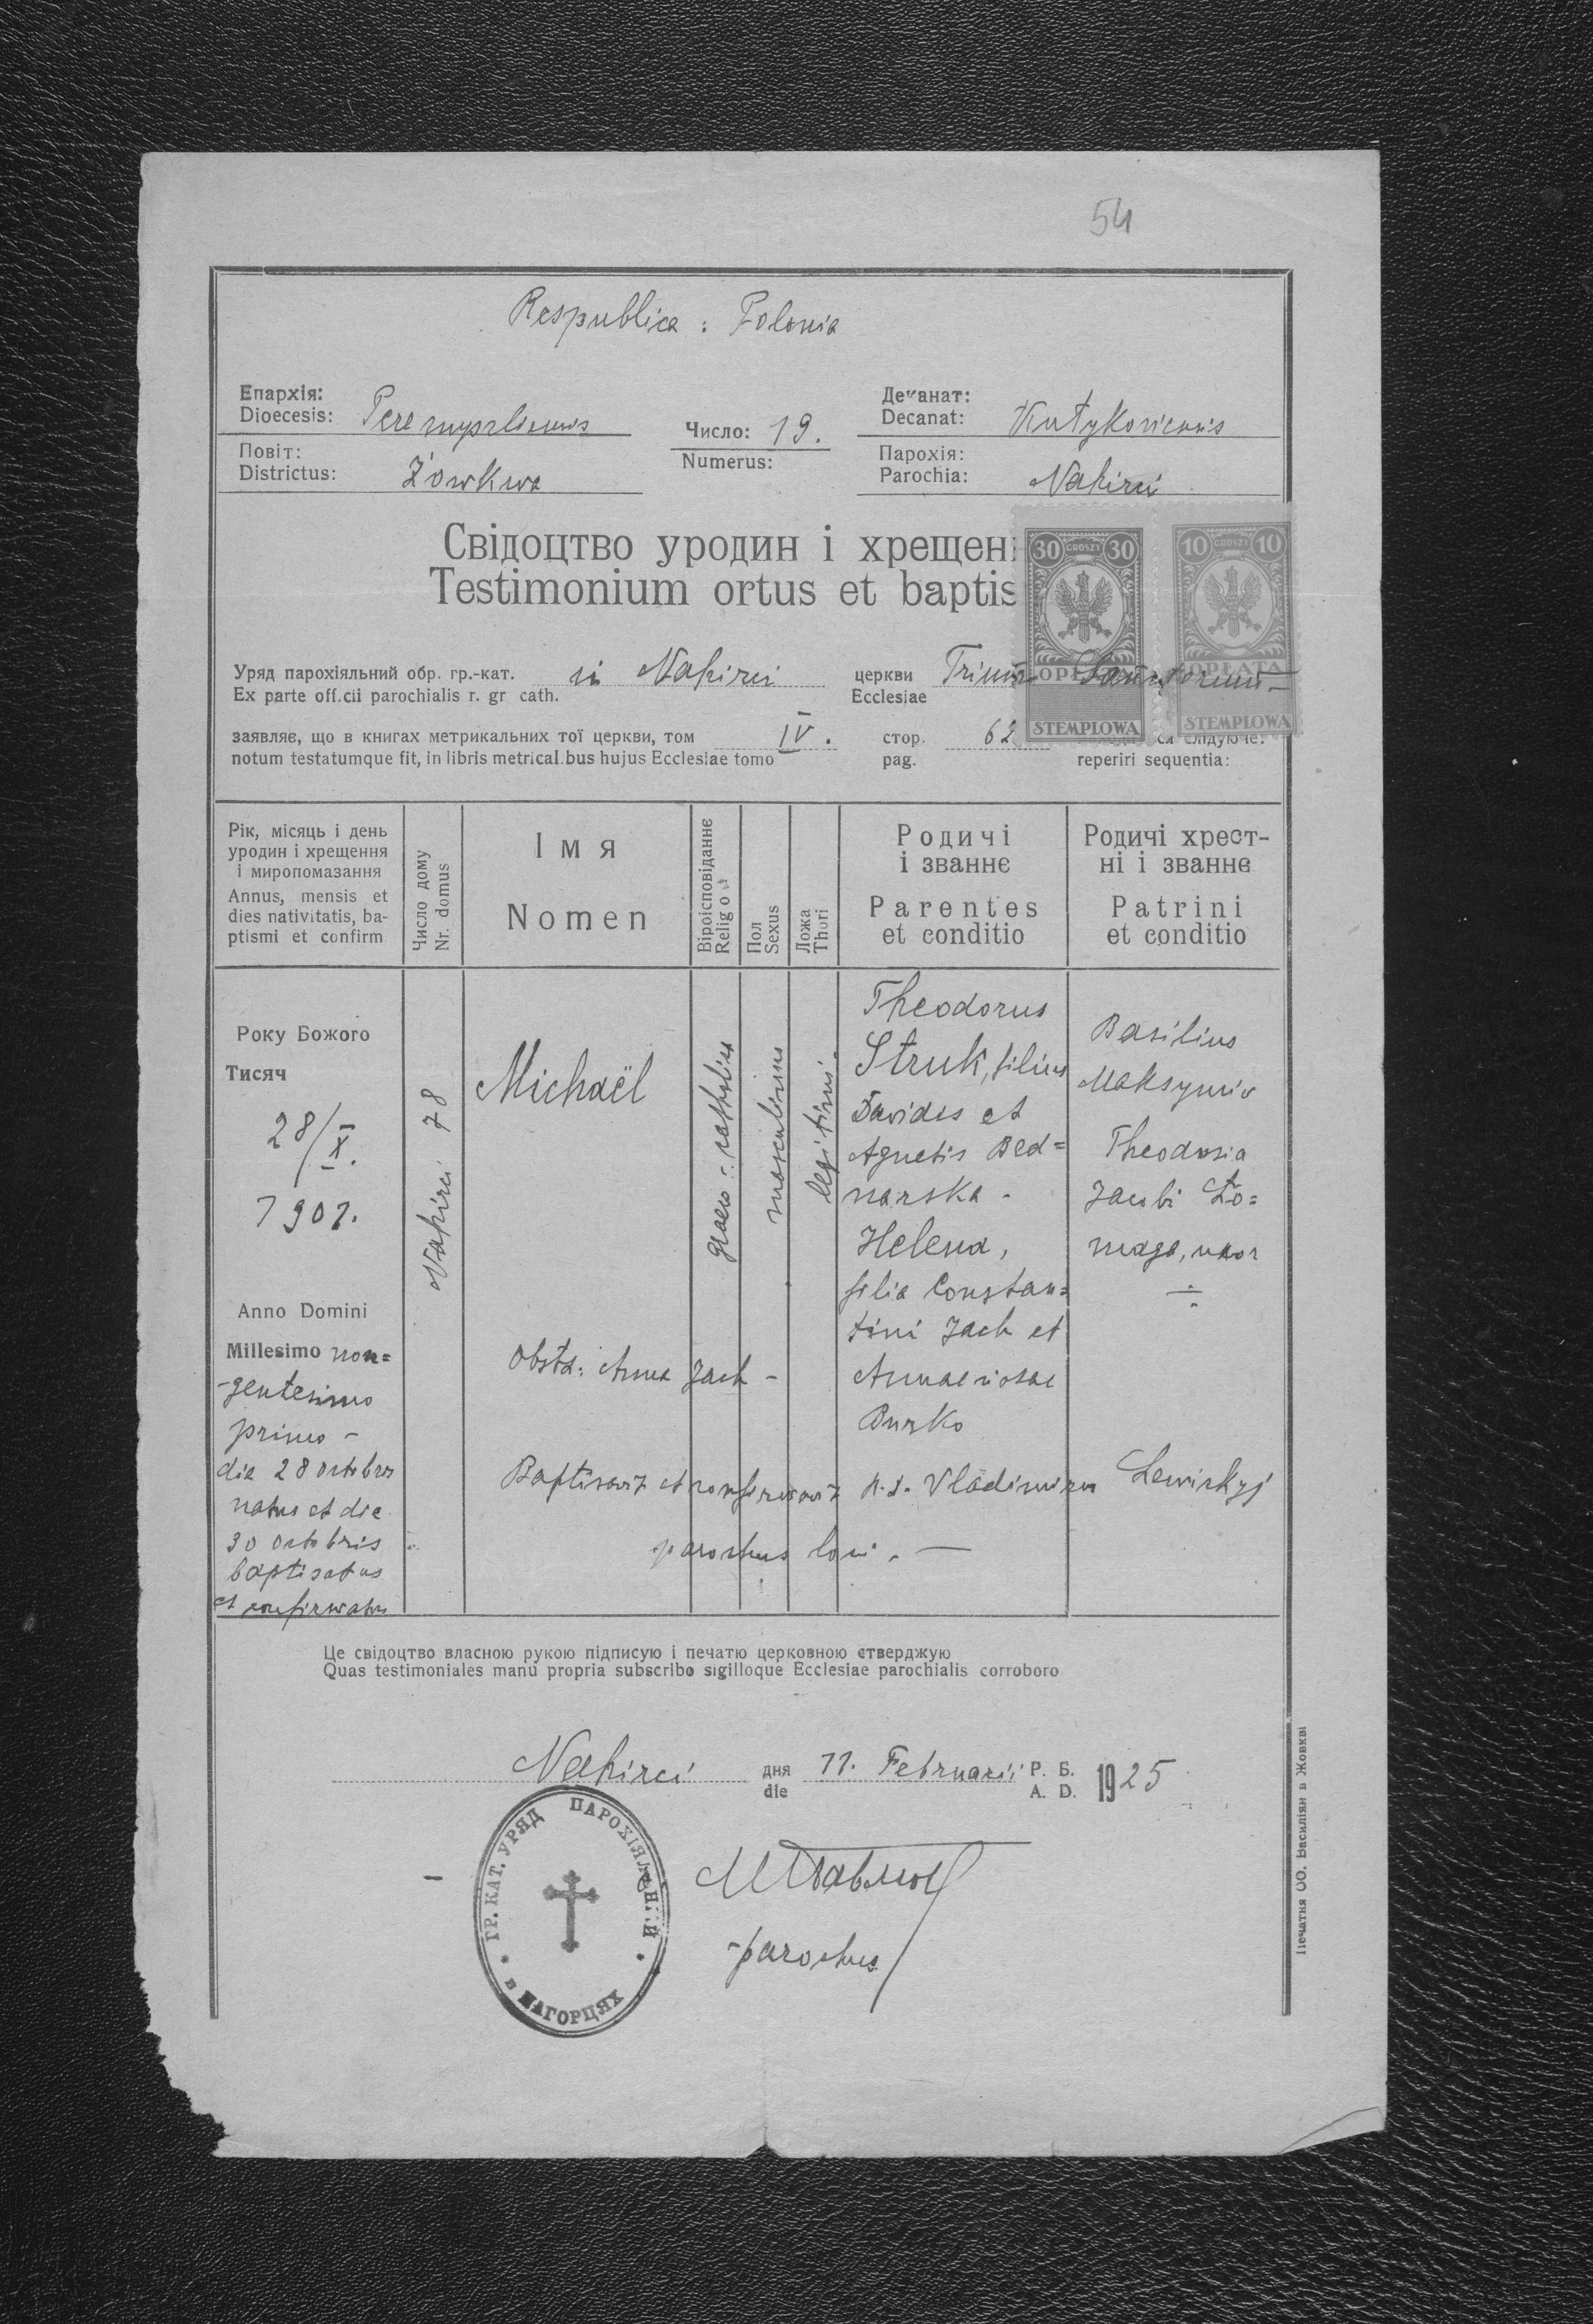 54
Respublica : Polonia
Епархія:
Dioecesis: Peremyszliensis
Число: 19.
Numerus:
Деканат:
Decanat: Kutykoviensis
Повіт:
Districtus: Żowkwa
Парохія:
Parochia: Nahirci
Свідоцтво уродин і хрещен
Testimonium ortus et baptis
30 GROSZY 30
OPŁATA
STEMPLOWA
10 GROSZY 10
OPŁATA
STEMPLOWA
Уряд парохіяльний обр. гр.-кат. in Nahirci церкви
Ex parte off.cii parochialis r. gr cath. Ecclesiae
заявляє, що в книгах метрикальних тої церкви, том IV. стор. 62 ся слідуюче:
notum testatumque fit, in libris metrical.bus hujus Ecclesiae tomo pag. reperiri sequentia:
Рік, місяць і день
уродин і хрещення
і миропомазання
Annus, mensis et
dies nativitatis, ba-
ptismi et confirm
Число дому
Nr. domus
Імя
Nomen
Віроісповіданнє
Relig o
Пол
Sexus
Ложа
Thori
Родичі
і званнє
Parentes
et conditio
Родичі хрест-
ні і званнє
Patrini
et conditio
Року Божого
Тисяч
28/X.
1901.
Anno Domini
Millesimo non=
-gentesimo
primo -
die 28 octobris
natus et die
30 octobris
baptisatus
et confirmatus
Nahirci 78
Michaël
graeco-catholica
masculinus
legitimi.
Theodorus
Struk, filius
Davidis et
Agnetis Bed=
narska -
Helena,
filia Constan=
tini Jach et
Annae
Burko
Basilius
Maksymiv
Theodosia
Jacobi Ło=
maga, uxor
Obsts: Anna Jach -
Baptisavit et confirmavit Vladimirus Lewickyj
parochus loci. —
Це свідоцтво власною рукою підписую і печатю церковною стверджую
Quas testimoniales manu propria subscribo sigilloque Ecclesiae parochialis corroboro
Nahirci дня 11. Februarii Р. Б. 1925
die A. D.
ГР. КАТ. УРЯД ПАРОХІЯЛЬНИЙ
в НАГОРЦЯХ
parochus
Печатня ОО. Василіян в Жовкві